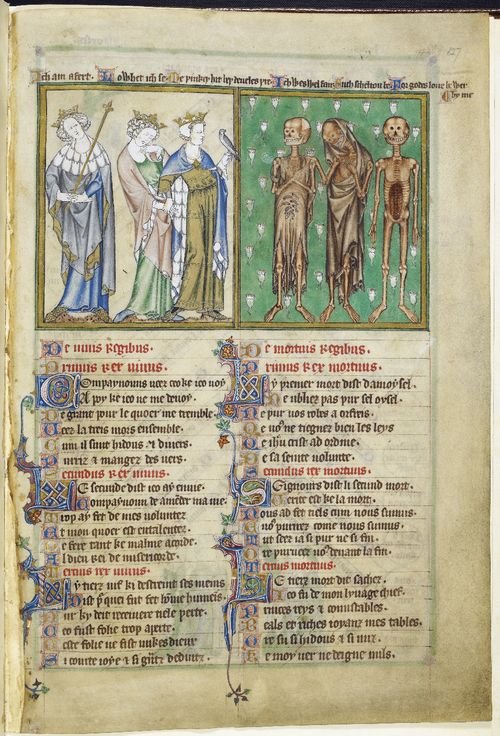 127
Ich am afert. Lo whet ich se. Me þinkeþ hit bey deueles þre. Ich wes wel fair. Such scheltou be. For godes loue be wer
by me
De uiuis regibus.
Primus rex uiuus.
Compaynouns ueez ceo ke ico voy
A poy ke ico ne me deuoy.
De grant pour le quoer me tremble.
Ueez la treis mors ensemble.
Cum il sunt hidous & diuers.
Purriz & mangez des uers.
Secundus rex uiuus.
Le secunde dist ico ay enuie.
Compaynoun de amender ma uie.
Trop ay fet de mes voluntez
E mon quoer est entalentez.
De fere tant ke malme acorde.
Al dieu rei de misericorde.
Tercius rex uiuus.
Ly tierz uif ki destreint ses meins
Dist pur quei fut fet home humeis
Pur ky deit receiuere tiele perte.
Ceo fust folie trop aperte.
Ceste folie ne fist unkes dieux
Si courte ioye & si grantz deduitz.
De mortuis regibus.
Primus rex mortuus.
Ly premer mort dist damoysel.
Ne ubliez pas pur sel oysel.
Ne pur vos robes a orfreis.
Qe vous ne tiegnez bien les leys
Qe ihesu crist ad ordine.
De sa seinte volunte.
Secundus rex mortuus.
Seignours dist li secund mort.
Verite est ke la mort.
Nous ad fet tiels cum nous sumus.
Et vous purrirez come nous sumus.
Tercius mortuus.
Le tierz mort dit sachez.
Ke ico fu de mon lynage chief.
Princes reys & conustables.
Beals et riches ioyanz mes tables.
Ore su si hidous & si nuz.
Ke moy uer ne deigne nuls.